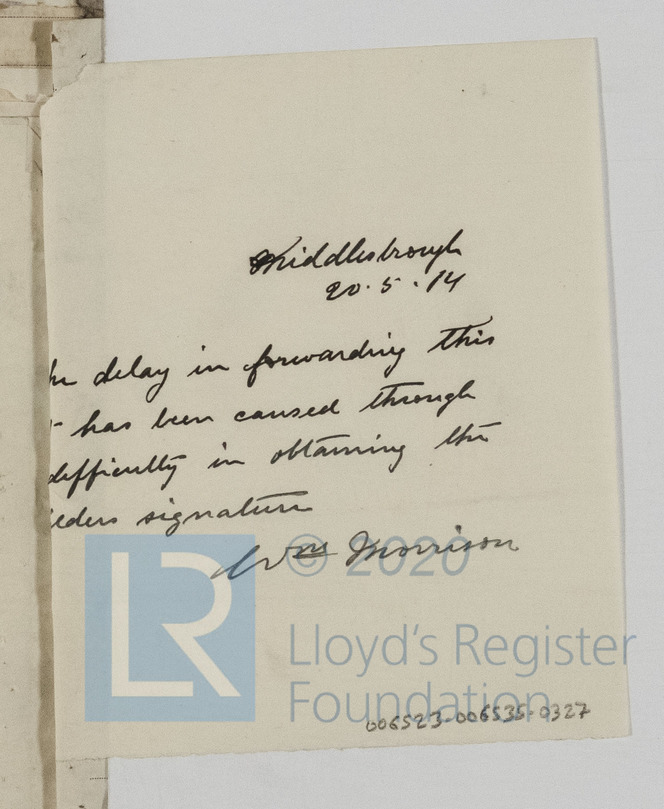 Middlesbrough
20.5.14
he delay in forwarding this
has been caused through
difficulty in obtaining the
ilders signature
Wm Morrison
© 2020
LR
Lloyd's Register
Foundation
006523-006535-0327